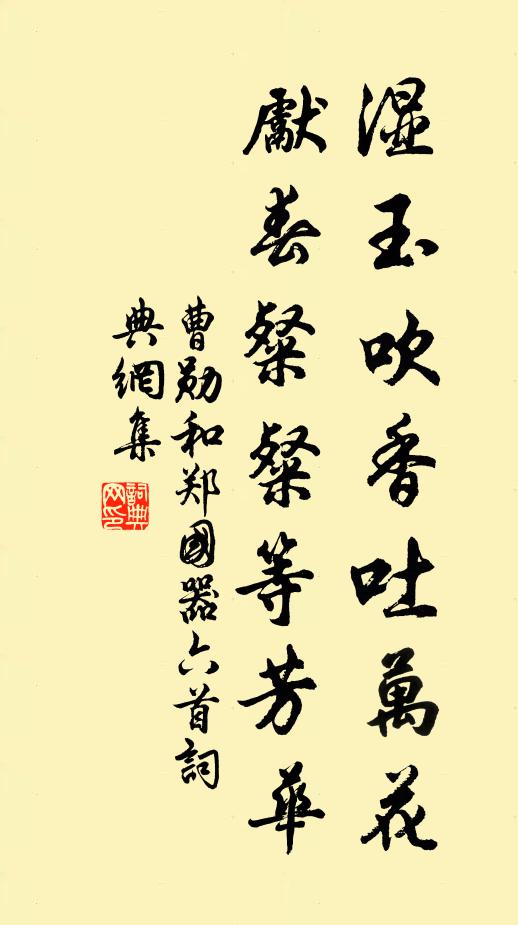 湿玉吹香吐萬花
獻春粲粲等芳華
曹勛和郑國器六首詞
典網集
詞典网印